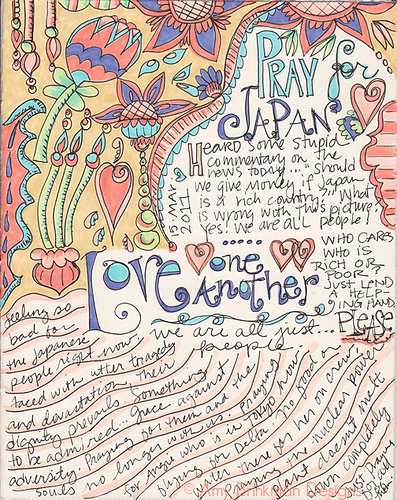 PRAY for
JAPAN
Heard some stupid
commentary on the
news today.... "should
we give money if Japan
is a rich country" What
is wrong with this picture?
Yes! we are all people!
15 MAR
2011
WHO CARES
WHO IS
RICH OR
POOR?
JUST LEND
A HELP-
ING HAND.
PLEASE
LOVE one
Another
We are all just...
people.
feeling so
bad for
the Japanese
people right now.
faced with utter tragedy
and devastation, their
dignity prevails. Something
to be admired... grace against
adversity. Praying for them and the
souls no longer with us. praying
for Angie who is in Tokyo now.
flying for Delta. no food or
water there for her or crew.
praying the nuclear power
plant doesn't melt
down completely
Just praying
© Amy Brinkman Designs